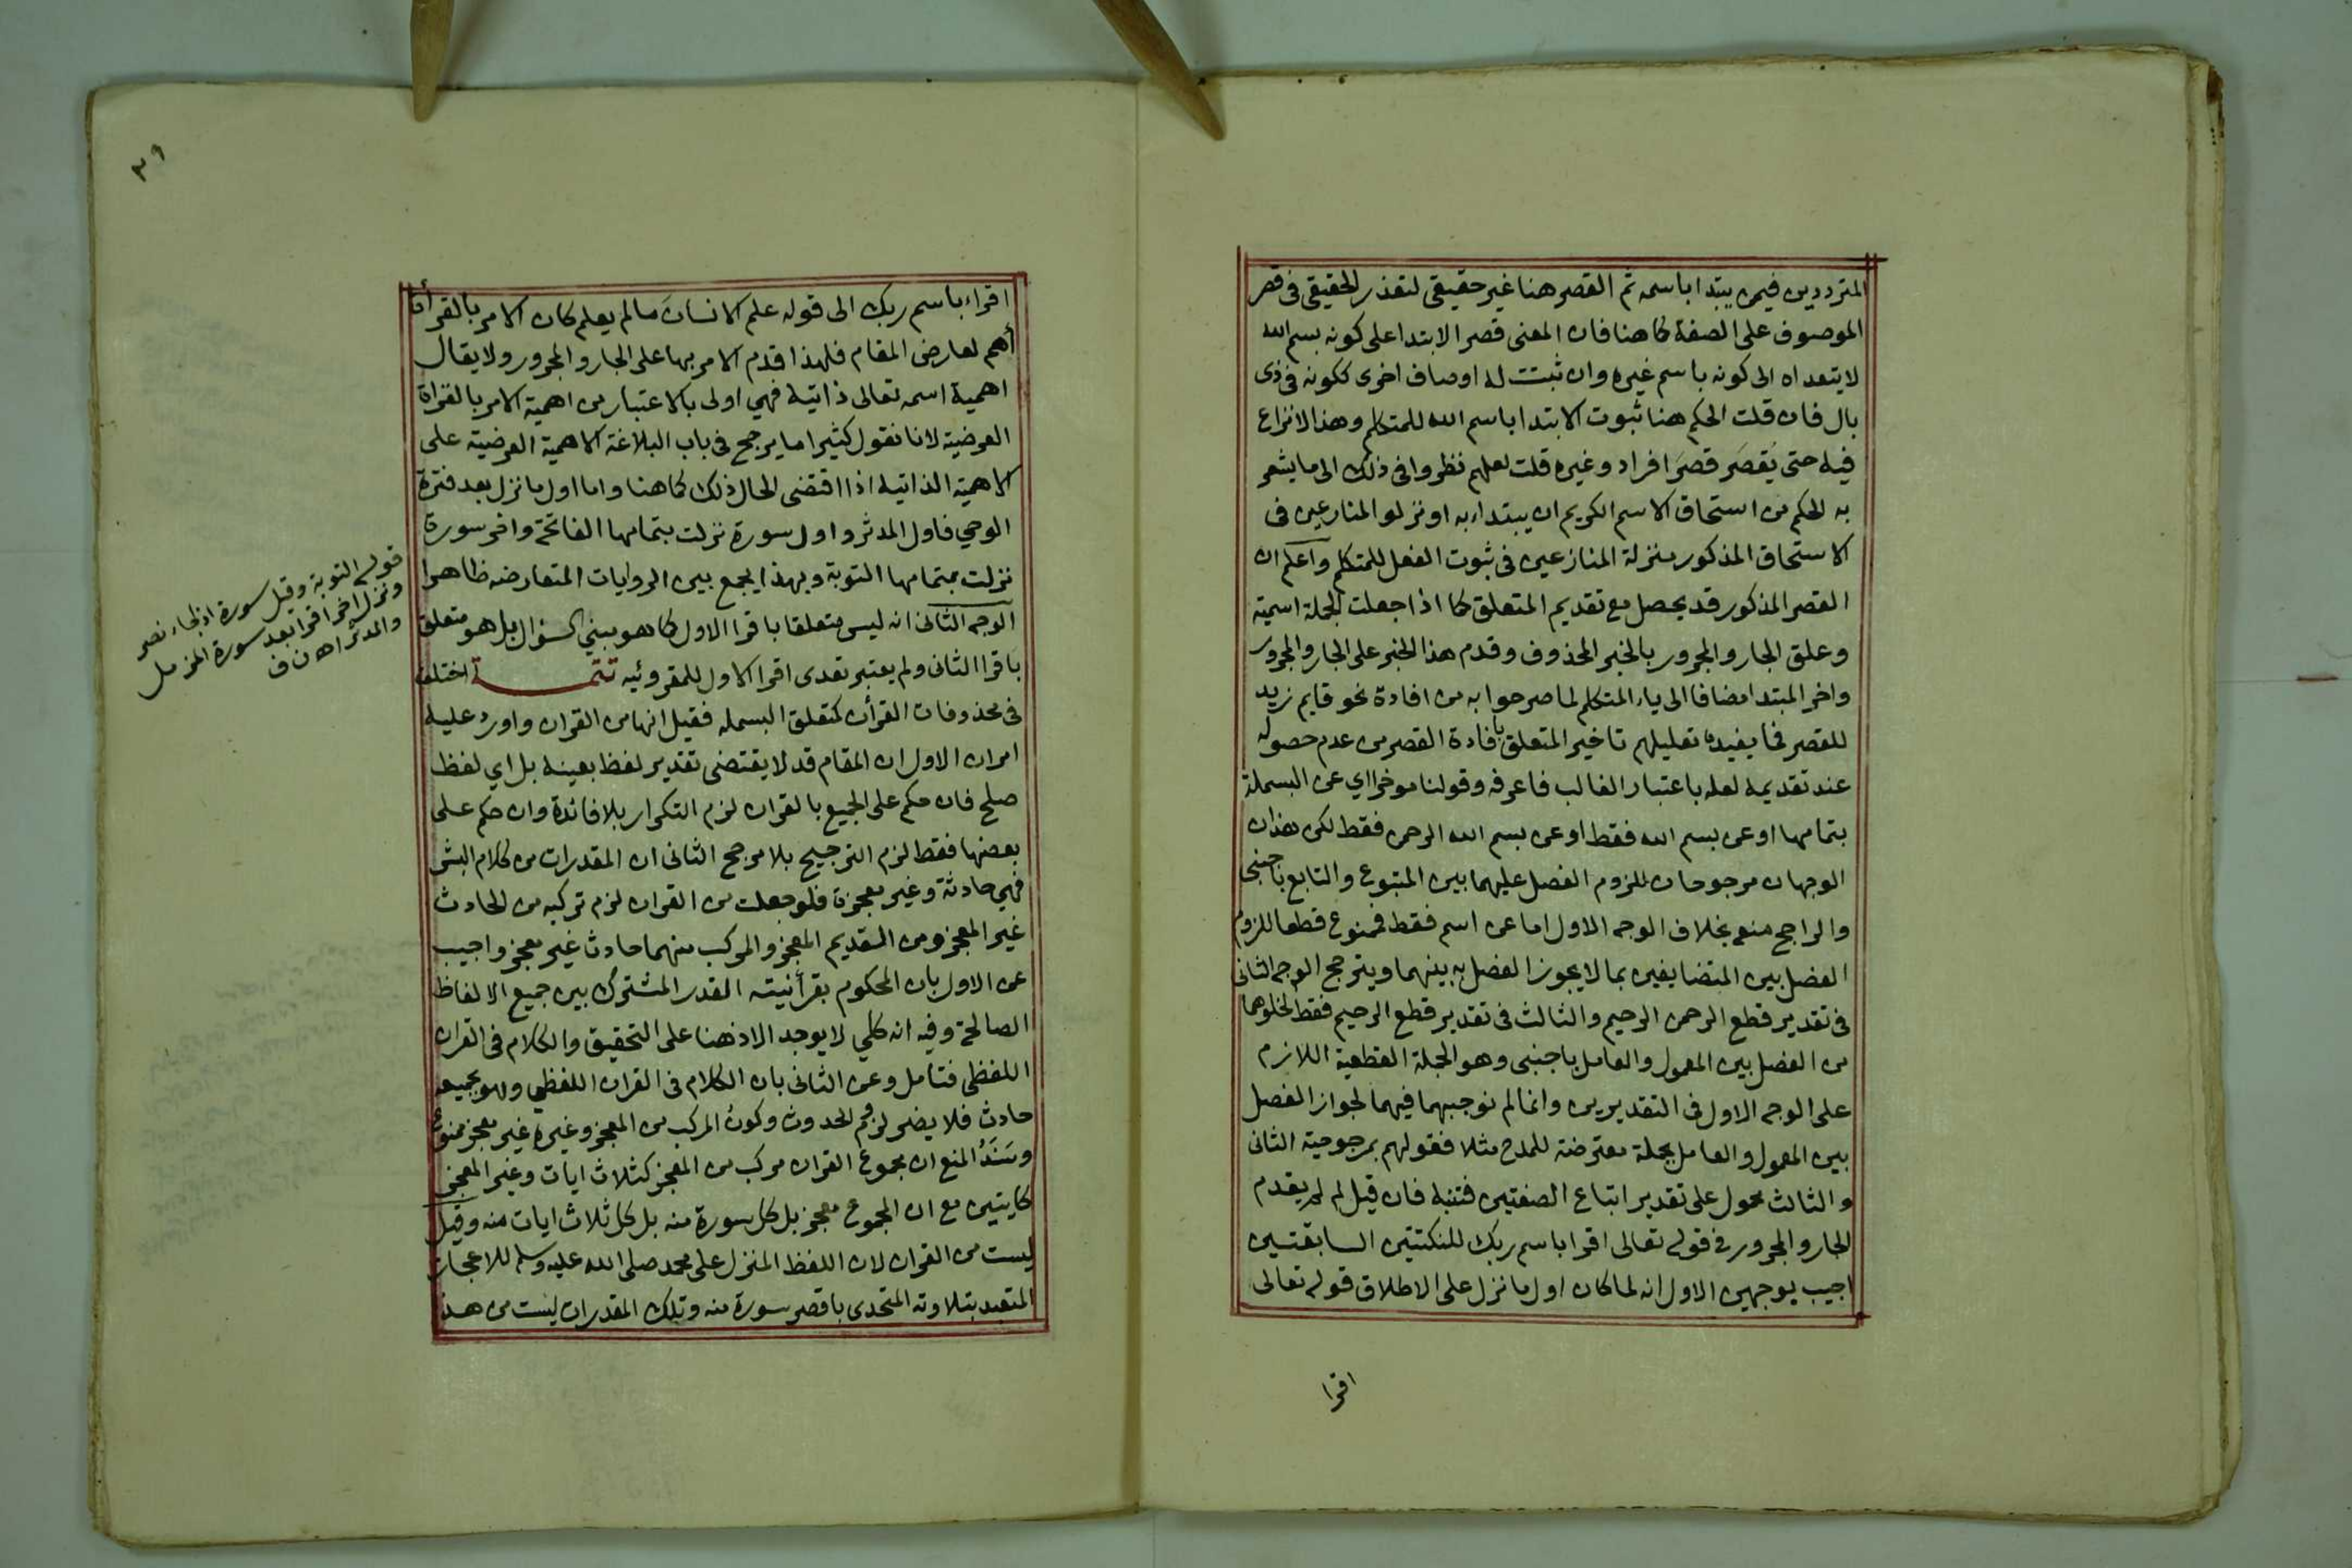 المترددين فيمن يبتدا باسمه ثم القصر هنا غير حقيقى لتعذر الحقيقى فى قصر
الموصوف على الصفة كما هنا فان المعنى قصر الابتدا على كونه بسم الله
لا يتعداه الى كونه باسم غيره وان ثبتت له اوصاف اخرى ككونه فى ذى
بال فان قلت الحكم هنا ثبوت الابتدا باسم الله للمتكلم وهذا لا نزاع
فيه حتى يُقصَر قصرَ افراد وغيره قلت لعلهم نظروا فى ذلك الى ما يشعر
به الحكم من استحاق الاسم الكريم ان يبتداء به او نزلو المنازعين فى
الاستحاق المذكور منزلة المنازعين فى ثبوت الفعل للمتكلم واعلم ان
القصر المذكور قد يحصل مع تقديم المتعلق كما اذا جعلت الجملة اسمية
وعلق الجار والمجرور بالخبر المحذوف وقدم هذا الخبر على الجار والمجرور
واخر المبتدا مضافا الى ياء المتكلم لما صرحوا به من افادة نحو قايم زيد
للقصر فما يفيده تعليلهم تاخير المتعلق بافادة القصر من عدم حصوله
عند تقديمه لعله باعتبار الغالب فاعرفه وقولنا موخرا اي عن البسملة
بتمامها او عن بسم الله فقط او عن بسم الله الرحمن فقط لكن هذان
الوجهان مرجوحان للزوم الفصل عليهما بين المتبوع والتابع باجنبى
والراجح منعه بخلاف الوجه الاول اما عن اسم فقط فممنوع قطعا للزوم
الفصل بين المتضايفين بما لا يجوز الفصل به بينهما ويترجح الوجه الثانى
فى تقدير قطع الرحمن الرحيم والثالث فى تقدير قطع الرحيم فقط لخلوهما
من الفصل بين المعمول والعامل باجنبى وهو الجملة القطعية اللازم
على الوجه الاول فى التقديرين وانما لم نوجبهما فيهما لجواز الفصل
بين المعمول والعامل بجملة معترضة للمدح مثلا فقولهم بمرجوحية الثانى
والثالث محمول على تقدير اتباع الصفتين فتنبه فان قيل لم لم يقدم
الجار والمجرور فى قوله تعالى اقرا باسم ربك للنكتتين السابقتين
اجيب بوجهين الاول انه لما كان اول ما نزل على الاطلاق قوله تعالى
اقرا
٣٩
اقراء باسم ربك الى قوله علم الانسان ما لم يعلم كان الامر بالقرأة
أهم لعارض المقام فلهذا قدم الامر بها على الجار والمجرور ولا يقال
اهمية اسمه تعالى ذاتية فهي اولى بالاعتبار من اهمية الامر بالقراة
العرضية لانا نقول كثيرا ما يرجح فى باب البلاغة الاهمية العرضية على
الاهمية الذاتية اذا اقتضى الحال ذلك كما هنا واما اول ما نزل بعد فترة
الوحي فاول المدثر واول سورة نزلت بتمامها الفاتحة واخر سورة
نزلت بتمامها التوبة وبهذا يجمع بين الروايات المتعارضه ظاهرا
الوجه الثانى انه ليس متعلقا باقرا الاول كما هو مبني السؤال بل هو متعلق
باقرا الثانى ولم يعتبر تعدى اقرا الاول للمقروئيه تتمة اختلف
فى محذوفات القرأن كمتعلق البسمله فقيل انها من القران واورد عليه
امران الاول ان المقام قد لا يقتضى تقدير لفظ بعينه بل اي لفظ
صلح فان حكم على الجميع بالقران لزم التكرار بلا فائدة وان حكم على
بعضها فقط لزم الترجيح بلا مرجح الثانى ان المقدرات من كلام البشر
فهي حادثة وغير معجزة فلو جعلت من القران لزم تركبه من الحادث
غير المعجز ومن القديم المعجز والمركب منهما حادث غير معجز واجيب
عن الاول بان المحكوم بقرأنيته القدر المشترك بين جميع الالفاظ
الصالحة وفيه انه كلي لا يوجد الا ذهنا على التحقيق والكلام فى القران
اللفظى فتامل وعن الثانى بان الكلام فى القران اللفظي وهو بجميعه
حادث فلا يضر لزوم الحدوث وكونُ المركب من المعجز وغيره غير معجز ممنوع
وسَنَدُ المنع ان مجموع القران مركب من المعجز كثلاث ايات وغير المعجز
كايتين مع ان المجموع معجز بل كل سورة منه بل كل ثلاث ايات منه وقيل
ليست من القران لان اللفظ المنزل على محمد صلى الله عليه وسلم للاعجاز
المتعبد بتلاوته المتحدى باقصر سورة منه وتلك المقدرات ليست من هذا
قوله التوبة وقيل سورة اذا جاء نصر
ونزل اخر اقرا بعد سورة المزمل
والمدثر اه ن ف